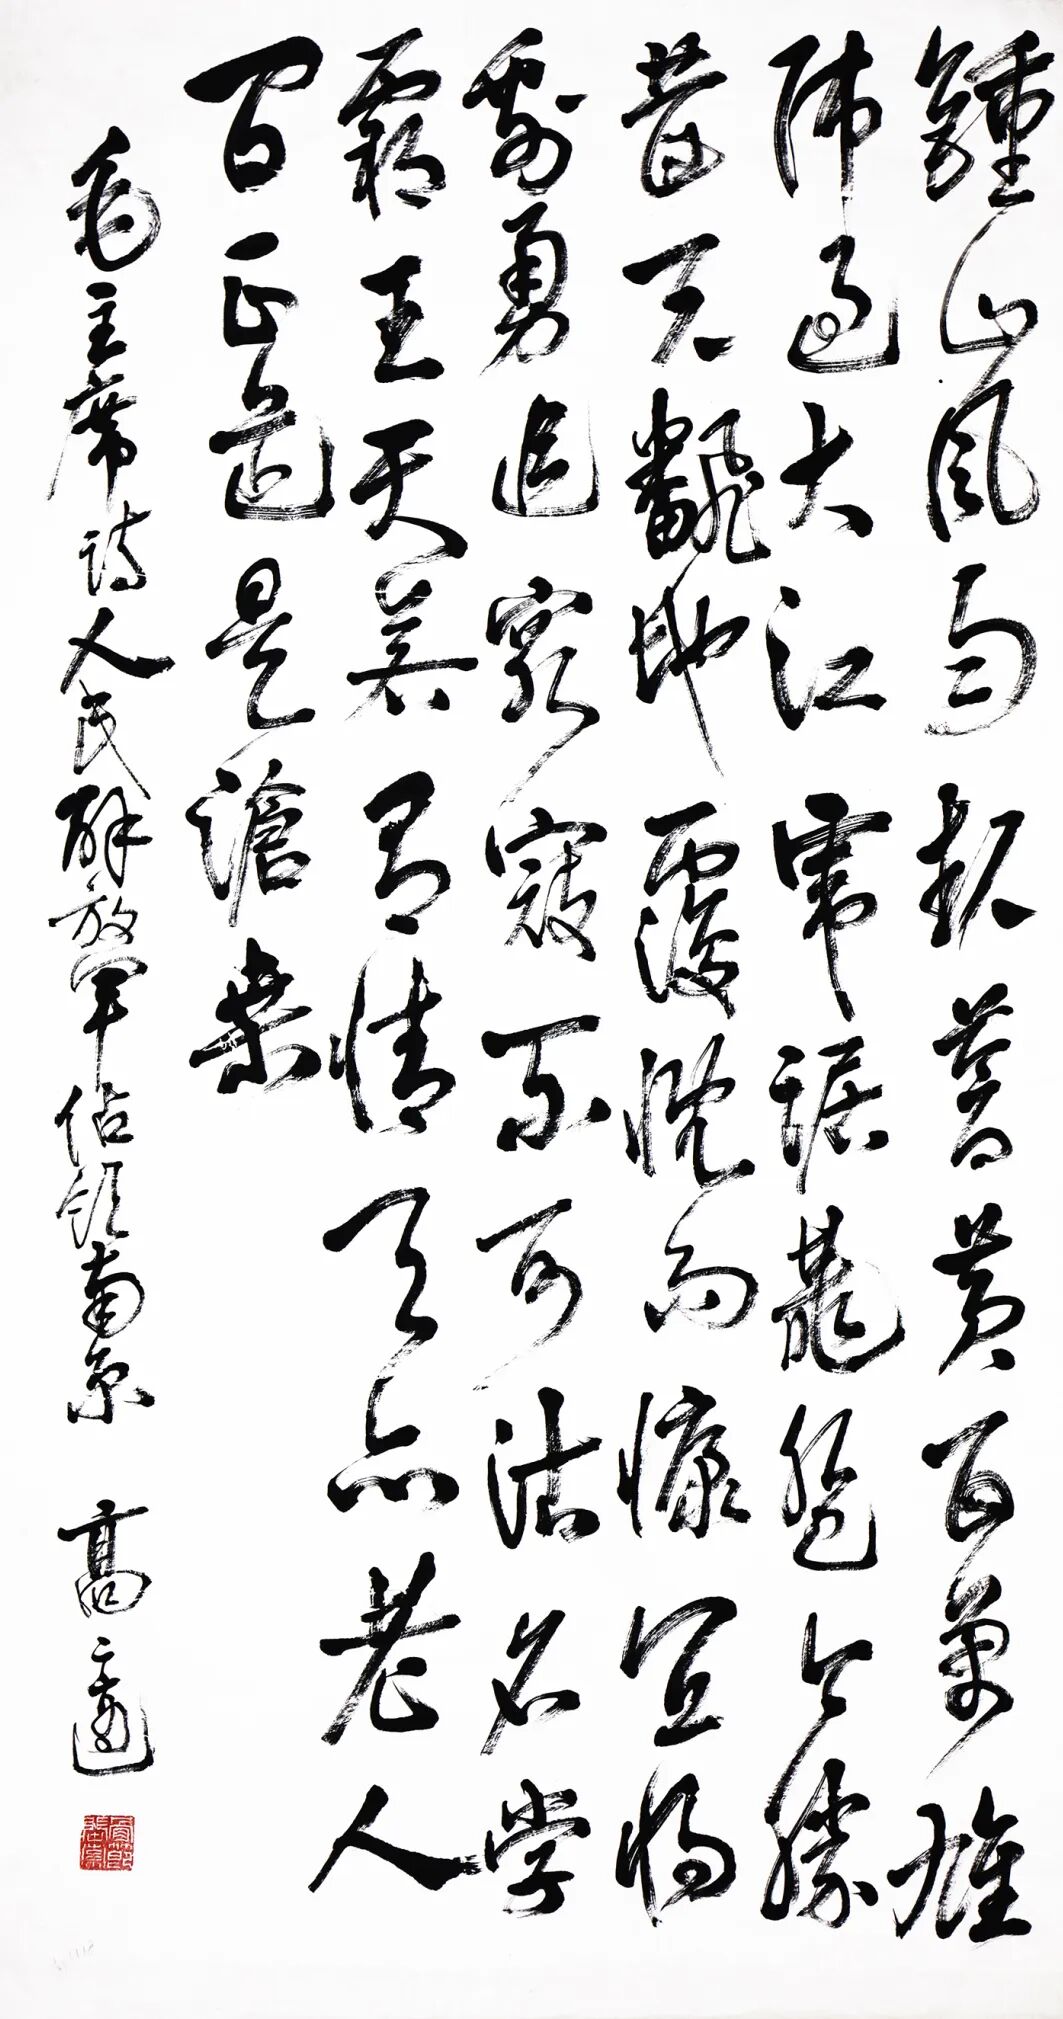 鍾山風雨起蒼黃百萬雄
師過大江虎踞龍盤今勝
昔天飜地覆慨而慷宜將
剩勇追窮寇不可沽名学
霸王天若有情天亦老人
间正道是滄桑
毛主席诗人民解放军佔领南京 高適